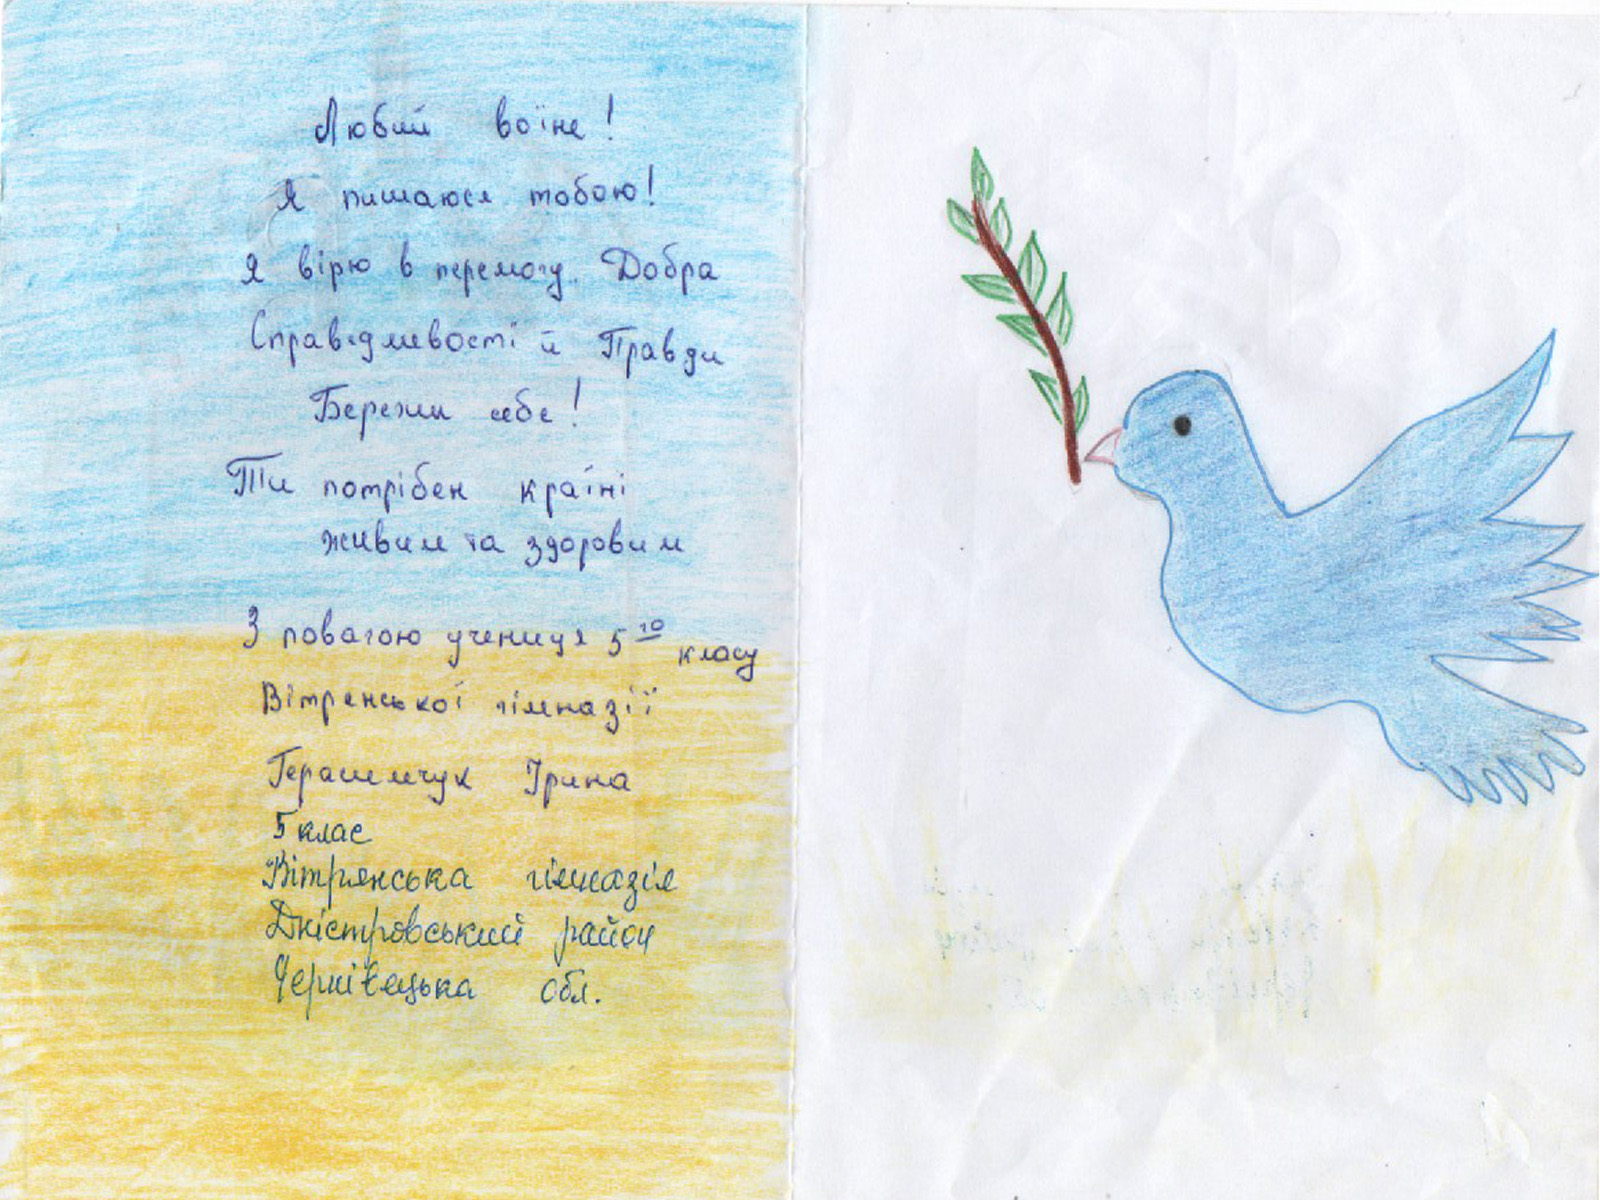 Любий воїне!
Я пишаюся тобою!
Я вірю в перемогу Добра
Справедливості й Правди
Бережи себе!
Ти потрібен країні
живим та здоровим
З повагою учениця 5го класу
Вітрянської гімназії
Герасимчук Ірина
5 клас
Вітрянська гімназія
Дністровський район
Чернівецька обл.